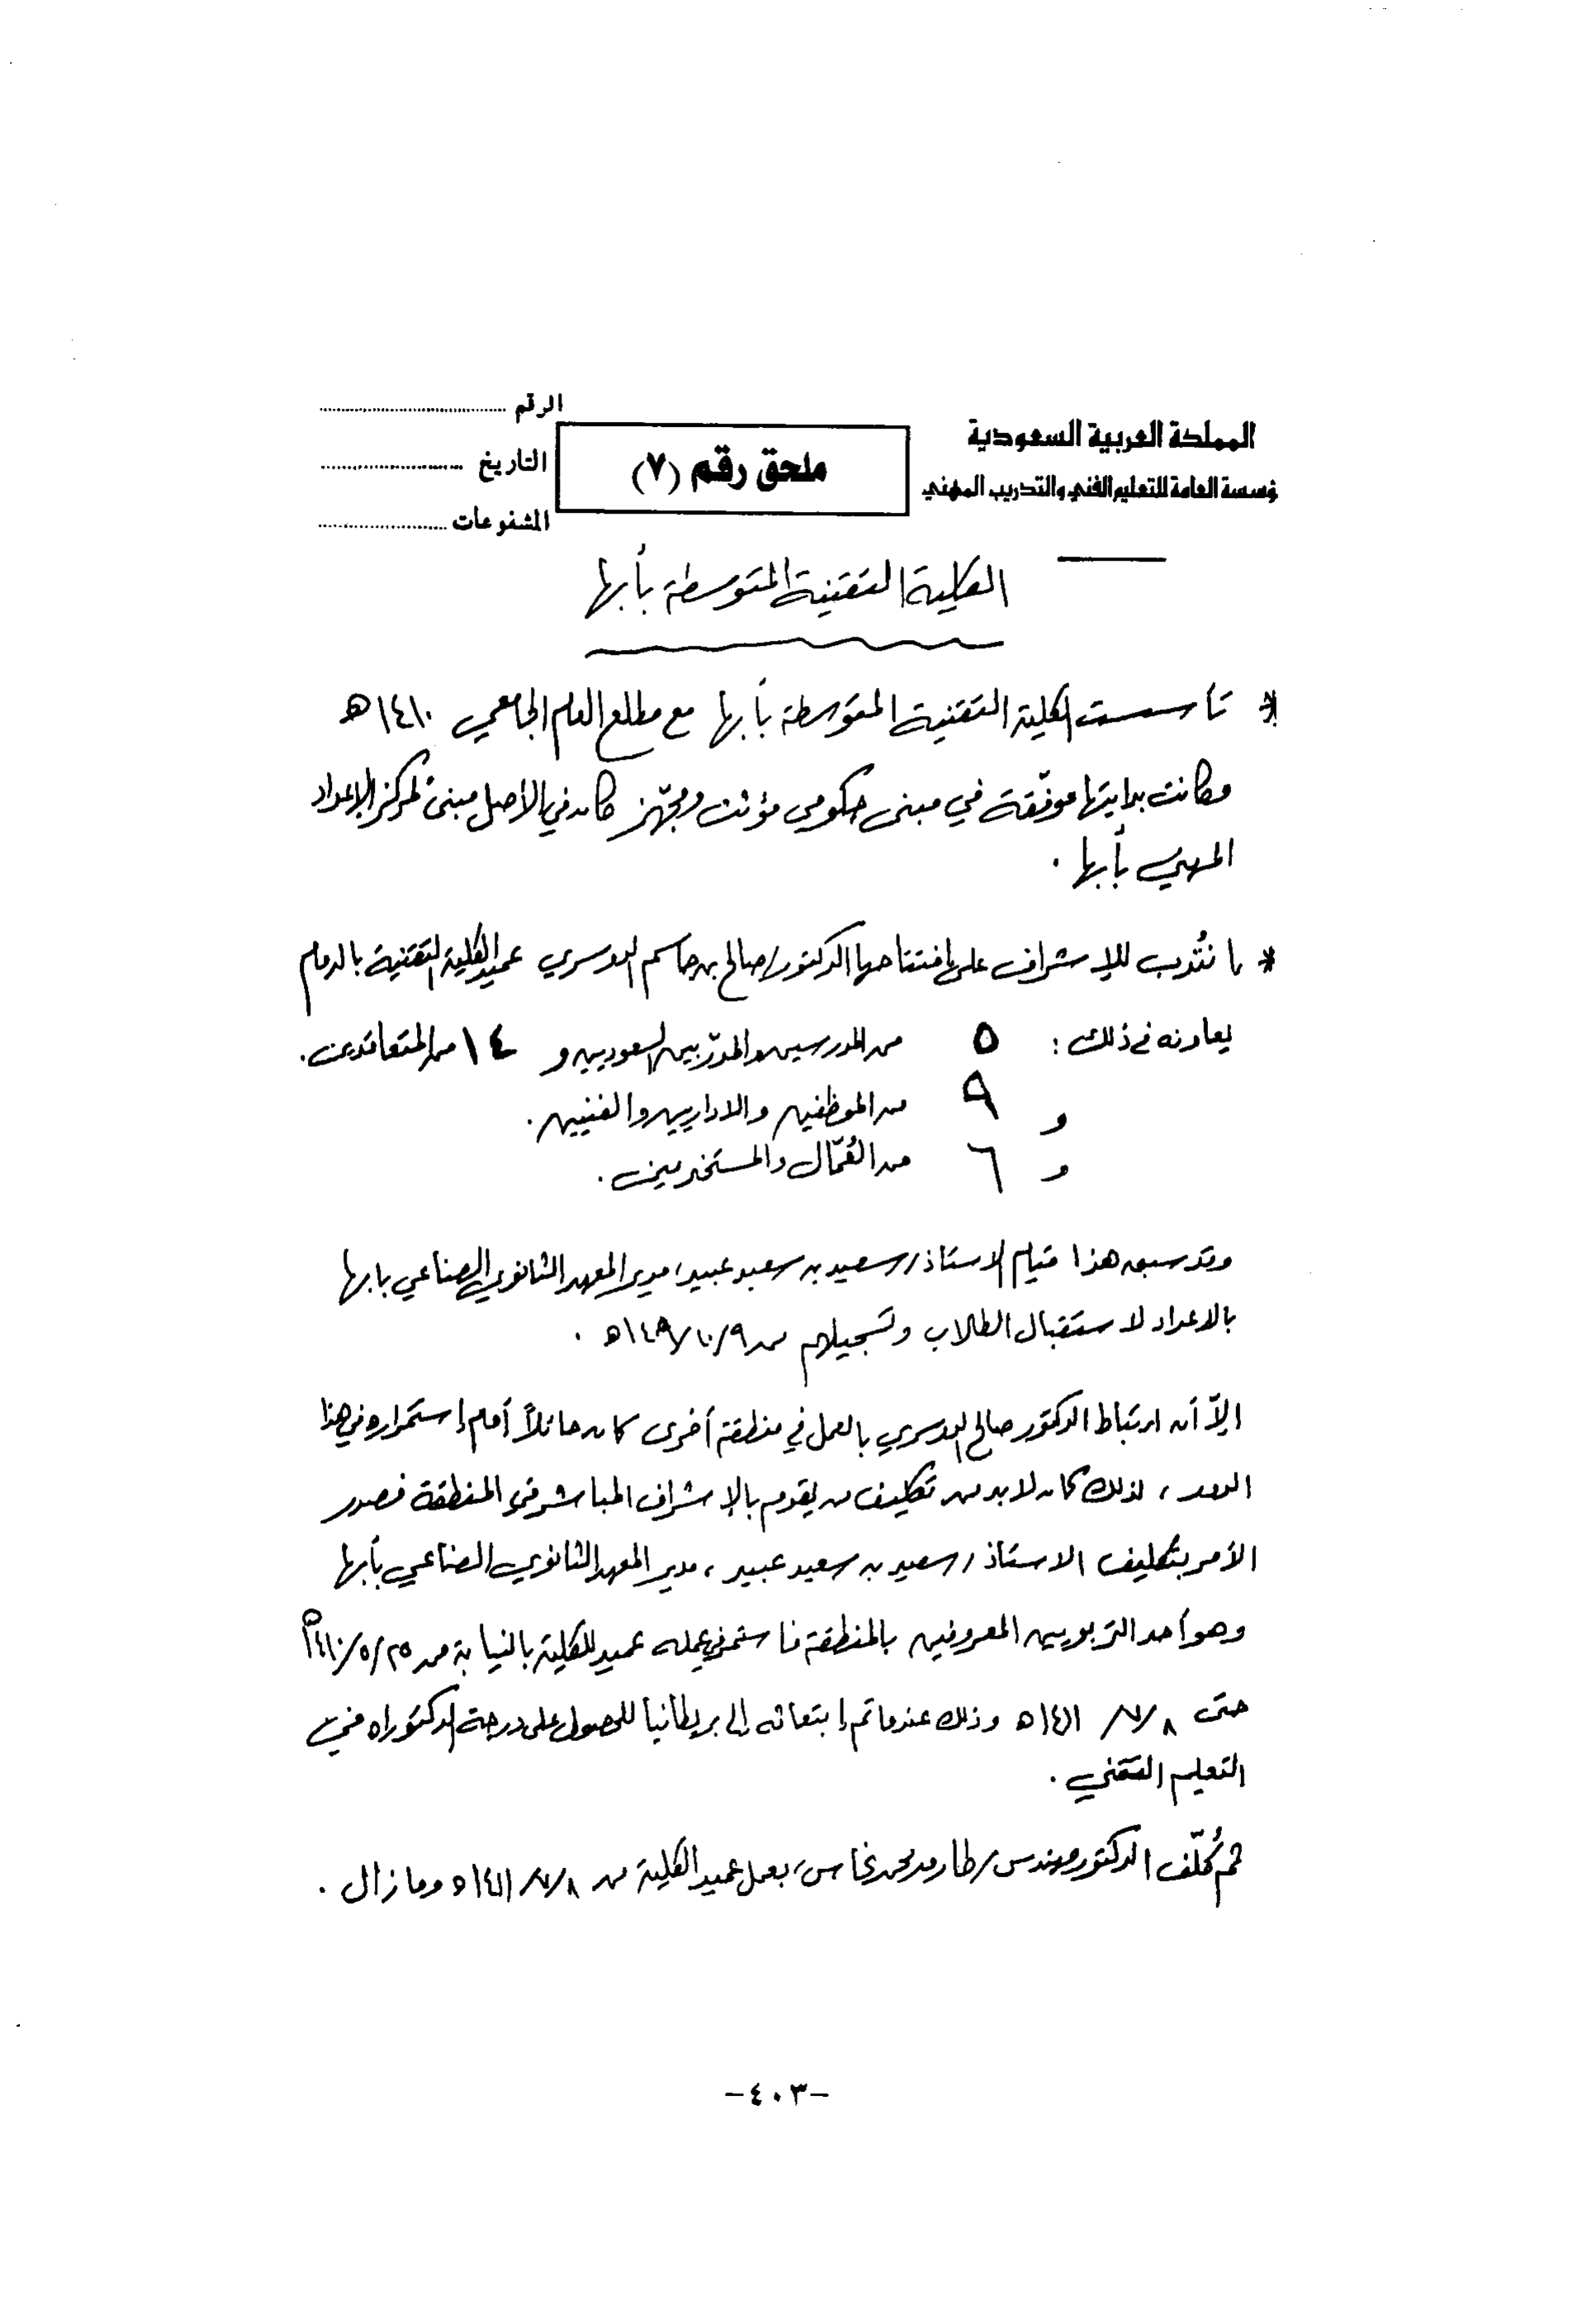 المملكة العربية السعودية
ؤسسة العامة للتعليم الفني والتدريب المهني
ملحق رقم (٧)
الرقم ........................
التاريخ ........................
المشفوعات ........................
الكلية التقنية المتوسطة بأبها
* تأسست الكلية التقنية المتوسطة بأبها مع مطلع العام الجامعي ١٤١٠هـ
وكانت بدايتها موفّقة في مبنى حكومي مؤثث ومجهّز كان في الأصل مبنى لمركز الإعداد
المهني بأبها .
* انتُدب للإشراف على افتتاحها الدكتور/صالح بن جاسم الدوسري عميد الكلية التقنية بالدمام
يعاونه في ذلك : ٥ من المدرسين والمدرّبين السعوديين و ١٤ من المتعاقدين.
و ٩ من الموظفين والاداريين والفنيين .
و ٦ من العُمّال والمستخدمين .
وقد سبق هذا قيام الاستاذ/سعيد بن سعيد عبيد، مدير المعهد الثانوي الصناعي بابها
بالاعداد لاستقبال الطلاب وتسجيلهم من ١٠/٩/ هـ .
الاّ أن ارتباط الدكتور صالح الدوسري بالعمل في منطقة أخرى كان حائلاً أمام إستمراره في هذا
الدور ، لذلك كان لابد من تكليف من يقوم بالإشراف المباشر في المنطقة فصدر
الأمر بتكليف الاستاذ/سعيد بن سعيد عبيد ، مدير المعهد الثانوي الصناعي بأبها
وهو أحد التربويين المعروفين بالمنطقة فاستمر في عمله عميد للكلية بالنيابة من ٢٥/٥/١٤١٠هـ
حتى ٧/٨/ ١٤١١هـ وذلك عندما تم إبتعاثه إلى بريطانيا للحصول على درجة الدكتوراه في
التعليم التقني .
ثم كُلّف الدكتور مهندس/طارق محمد نحاس، بعمل عميد الكلية من ٧/٨/١٤١١هـ ومازال .
-٤٠٣-